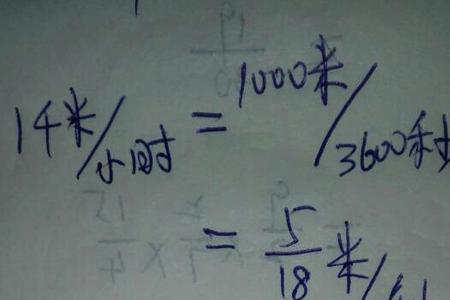 1千米/小时 = 1000米/3600秒
= 5/18 米/